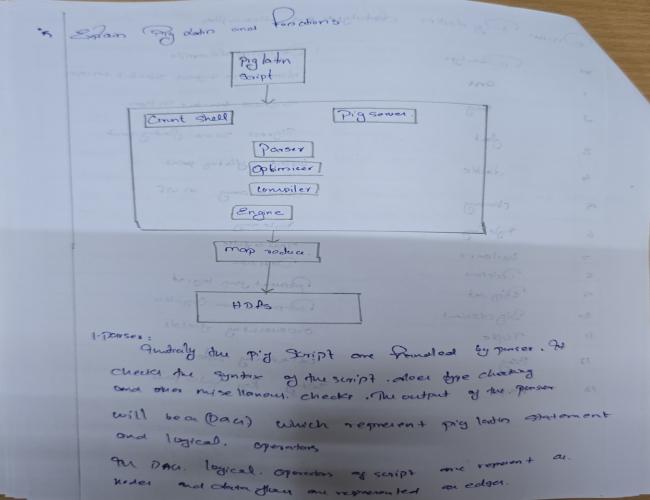 Explain Pig latin and Functions
Pig latin
Script
Grunt Shell
Pig server
Parser
Optimizer
Compiler
Engine
Map reduce
HDFS
1. Parser:
the Pig Script are handled by parser. It
checks the syntax of the script. does type checking
and other miscellanous checks. The output of the parser
will be a (DAG) which represent pig latin statement
and logical. operators
In DAG. logical. operators of script are represent as
nodes and data flows are represented as edges.